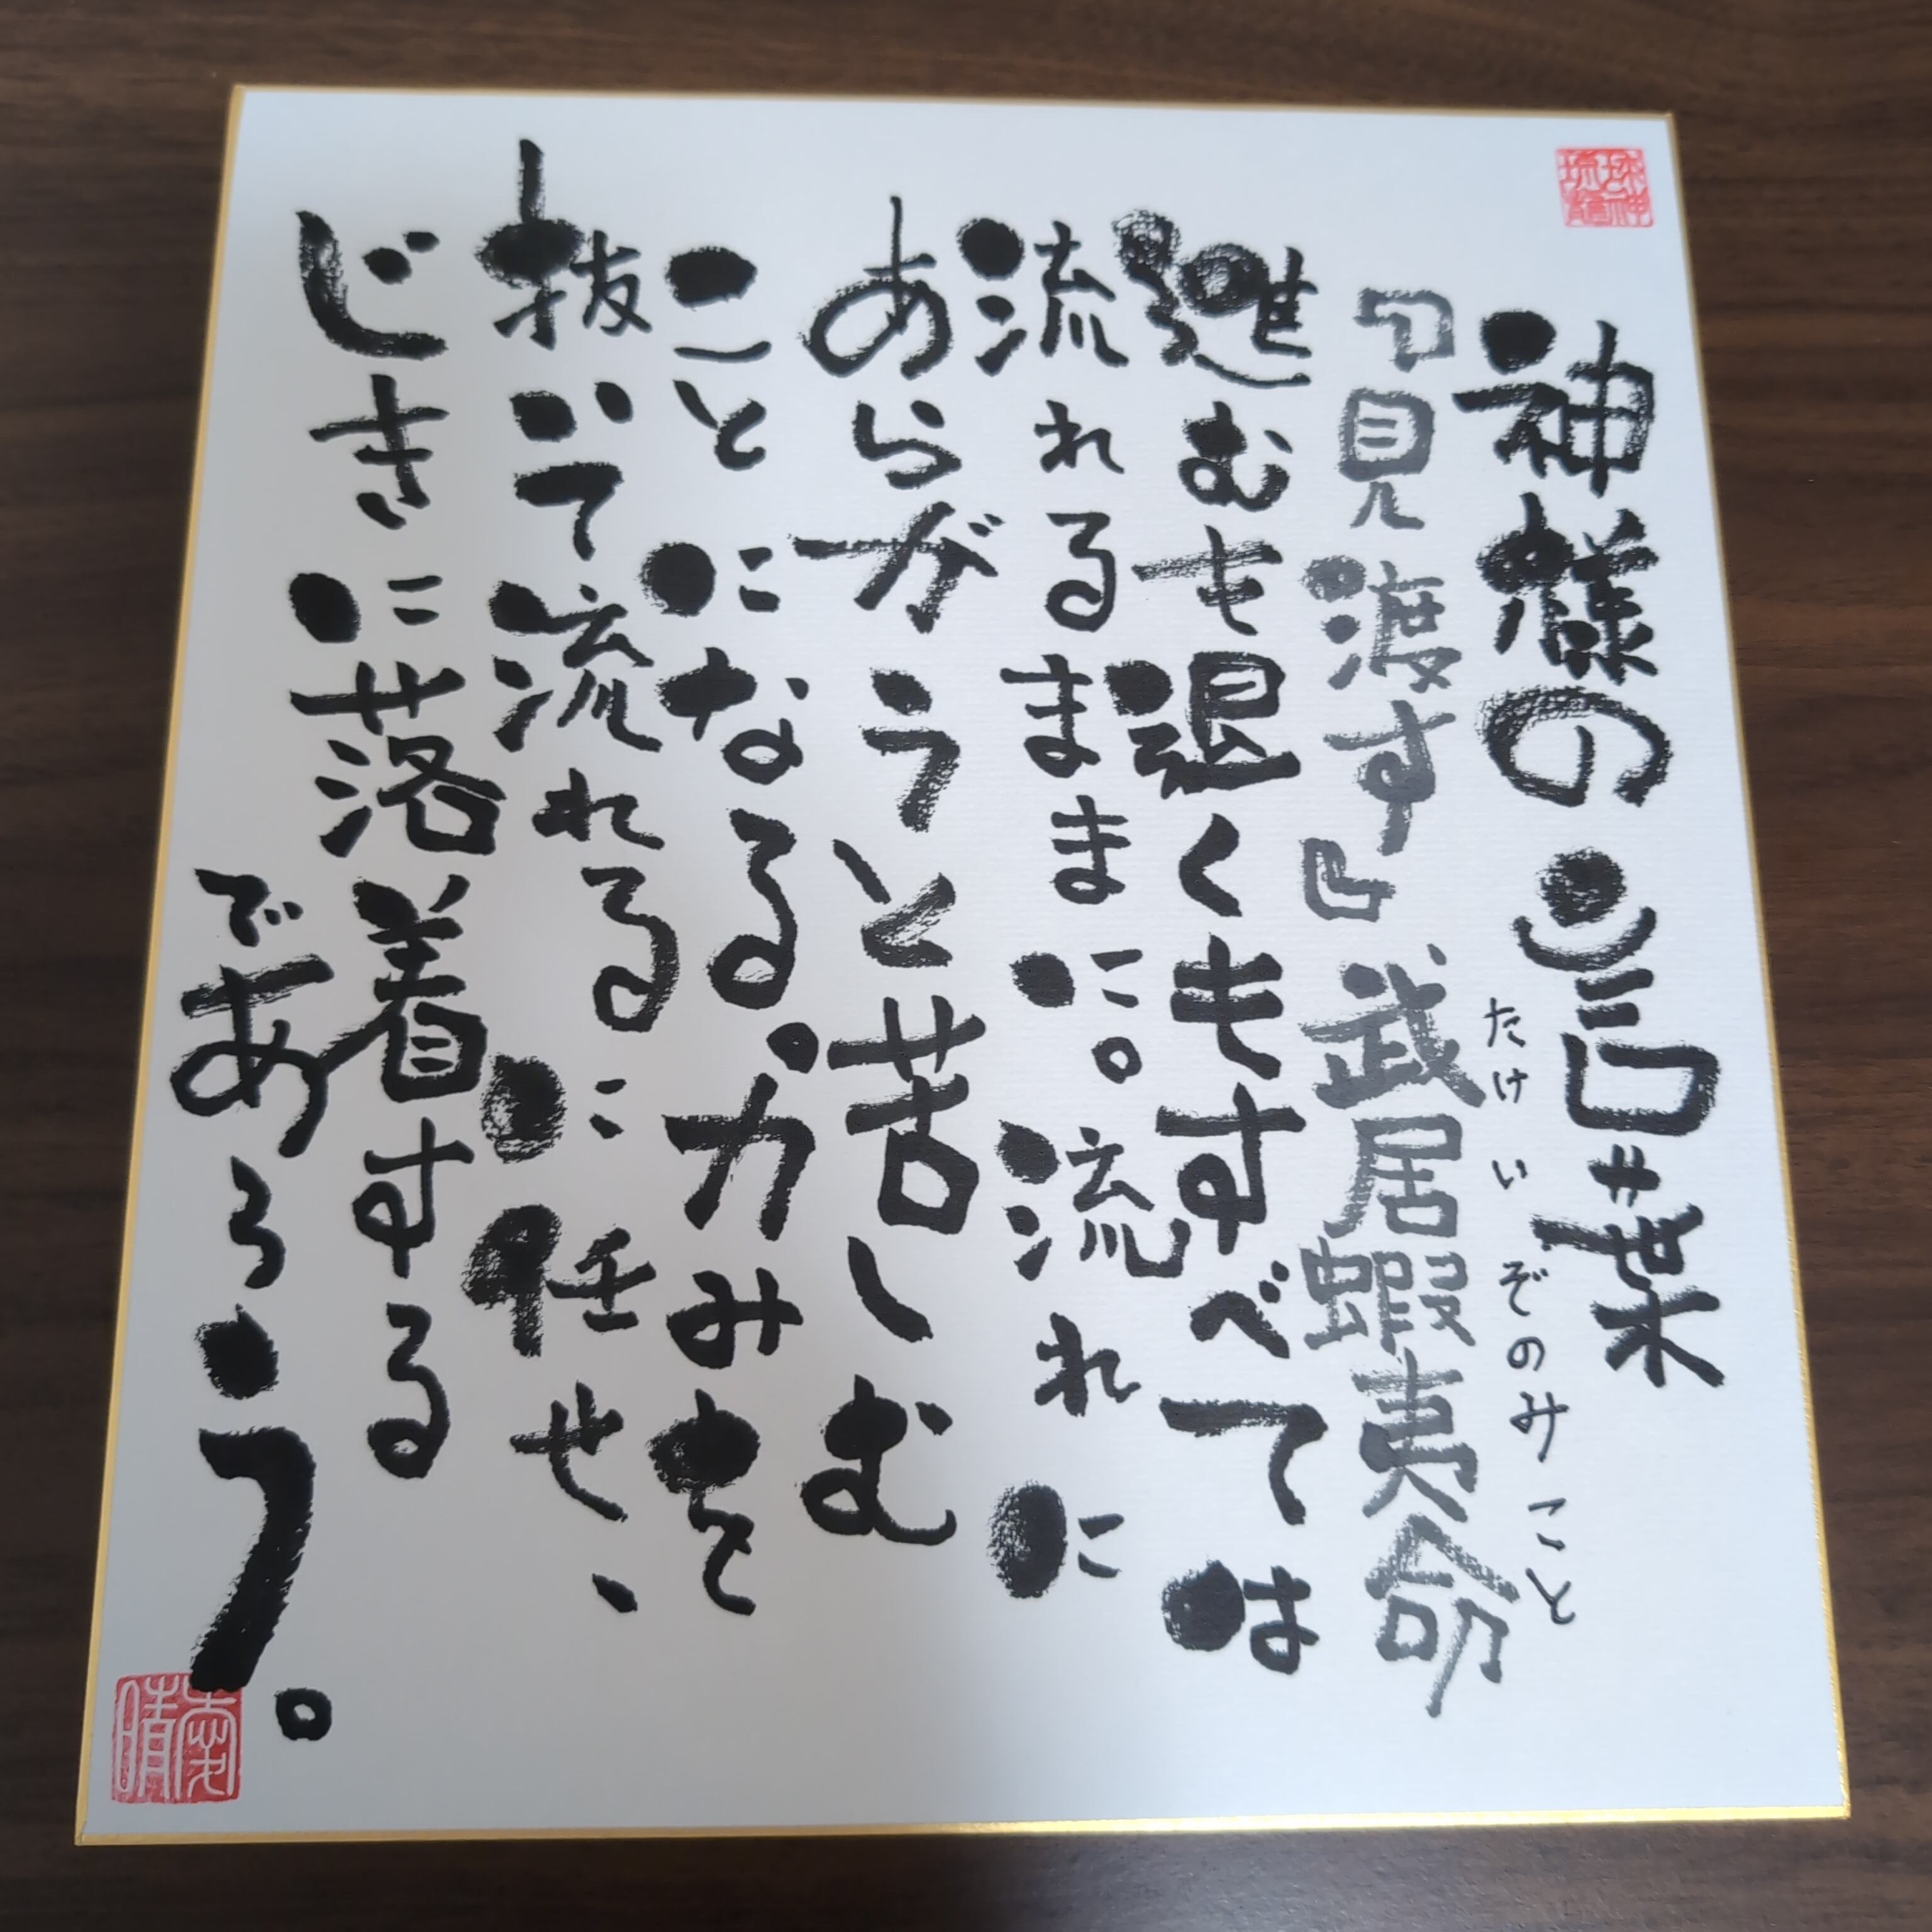 神様の言葉
『見渡す』武居蝦夷命
たけいぞのみこと
進むも退くもすべては
流れるままに。流れに
あらがうと苦しむ
ことになる。力みを
抜いて流れるに任せ、
じきに落着する
であろう。